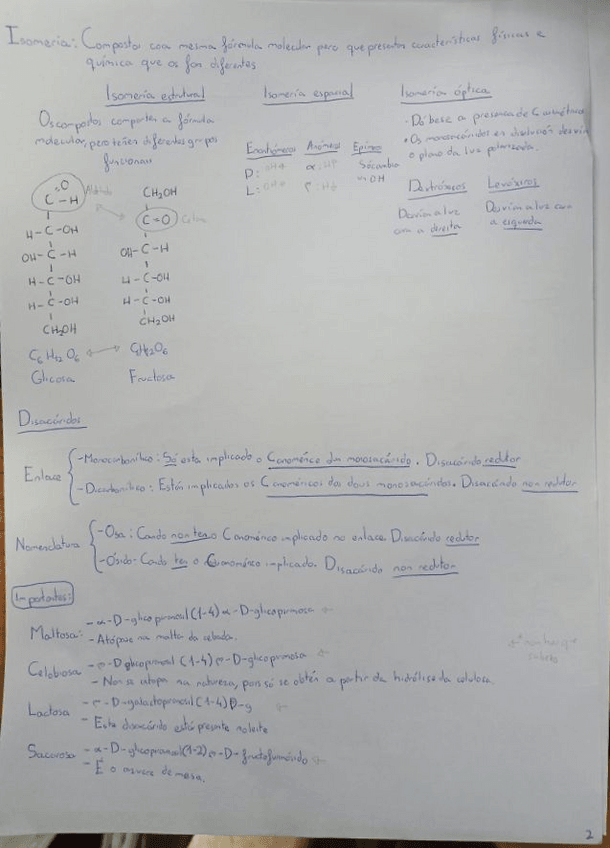 Isomería: Compostos coa mesma fórmula molecular pero que presentan características físicas e
química que os fan diferentes
Isomería estrutural
Os compostos comparten a fórmula
molecular, pero teñen diferentes grupos
funcionais
Isomería espacial
Enantiómeros Anómeros Epímeros
D: α:
L:
Isomería óptica
- Dá base a presenza de C asimétrico
• Os monosacáridos en disolución desvían
o plano da luz polarizada.
Dextróxiros Levóxiros
Desvían a luz
cara a dereita
Desvían a luz cara
a esquerda
O
C - H Aldehído
H - C - OH
OH - C - H
H - C - OH
H - C - OH
CH2OH
C6H12O6
Glicosa
CH2OH
C = O Cetona
OH - C - H
H - C - OH
H - C - OH
CH2OH
C6H12O6
Fructosa
Disacáridos
Enlace
- Monocarbonílico: Só esta implicado o C anomérico dun monosacárido. Disacárido redutor
- Dicarbonílico: Están implicados os C anoméricos dos dous monosacáridos. Disacárido non redutor
Nomenclatura
- Osa: Cando non ten o C anomérico implicado no enlace. Disacárido redutor
- Ósido - Cando ten o C anomérico implicado. Disacárido non redutor
Importantes:
Maltosa: - α-D-glicopiranosil (1-4) α-D-glicopiranosa
- Atópase na malta da cebada.
Celobiosa - D-glicopiranosil (1-4) D-glicopiranosa
- Non se atopa na natureza, pois só se obtén a partir da hidrólise da celulosa
Lactosa - D-galactopiranosil (1-4) D-g
- Este disacárido está presente no leite
Sacarosa - α-D-glicopiranosil (1-2) D-fructofuranósido
- É o azucre de mesa.
2